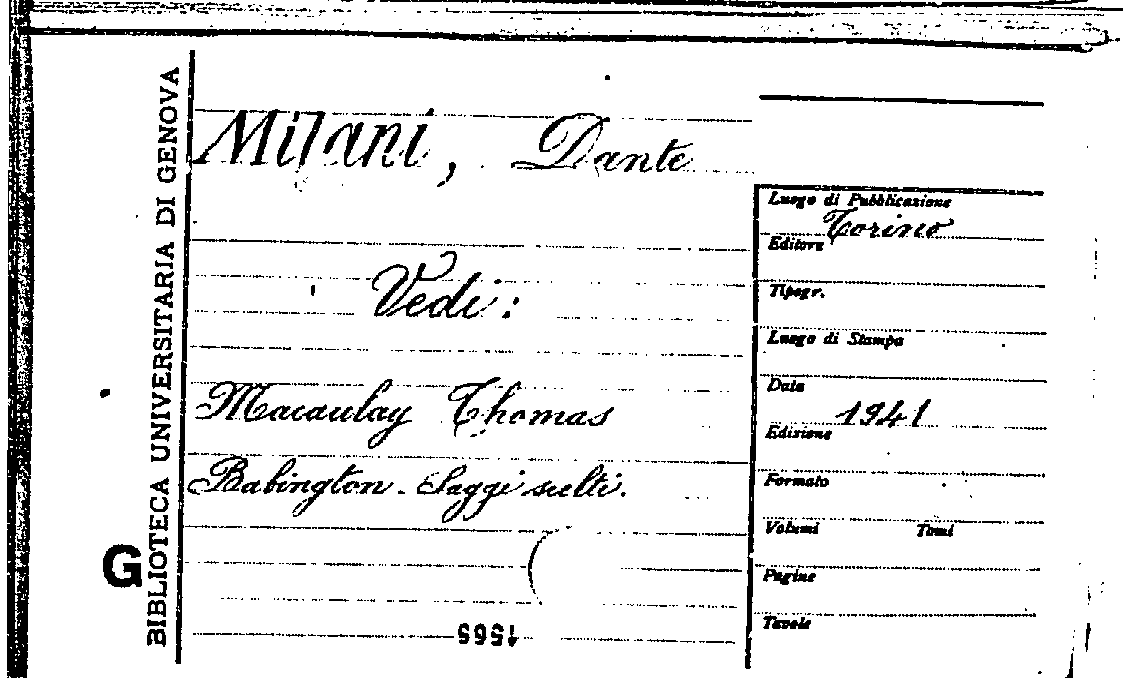 BIBLIOTECA UNIVERSITARIA DI GENOVA
G
Milani, Dante
Vedi:
Macaulay Thomas
Babington - Saggi scelti.
1565
Luogo di Pubblicazione
Torino
Editore
Tipogr.
Luogo di Stampa
Data
1941
Edizione
Formato
Volumi Tomi
Pagine
Tavole